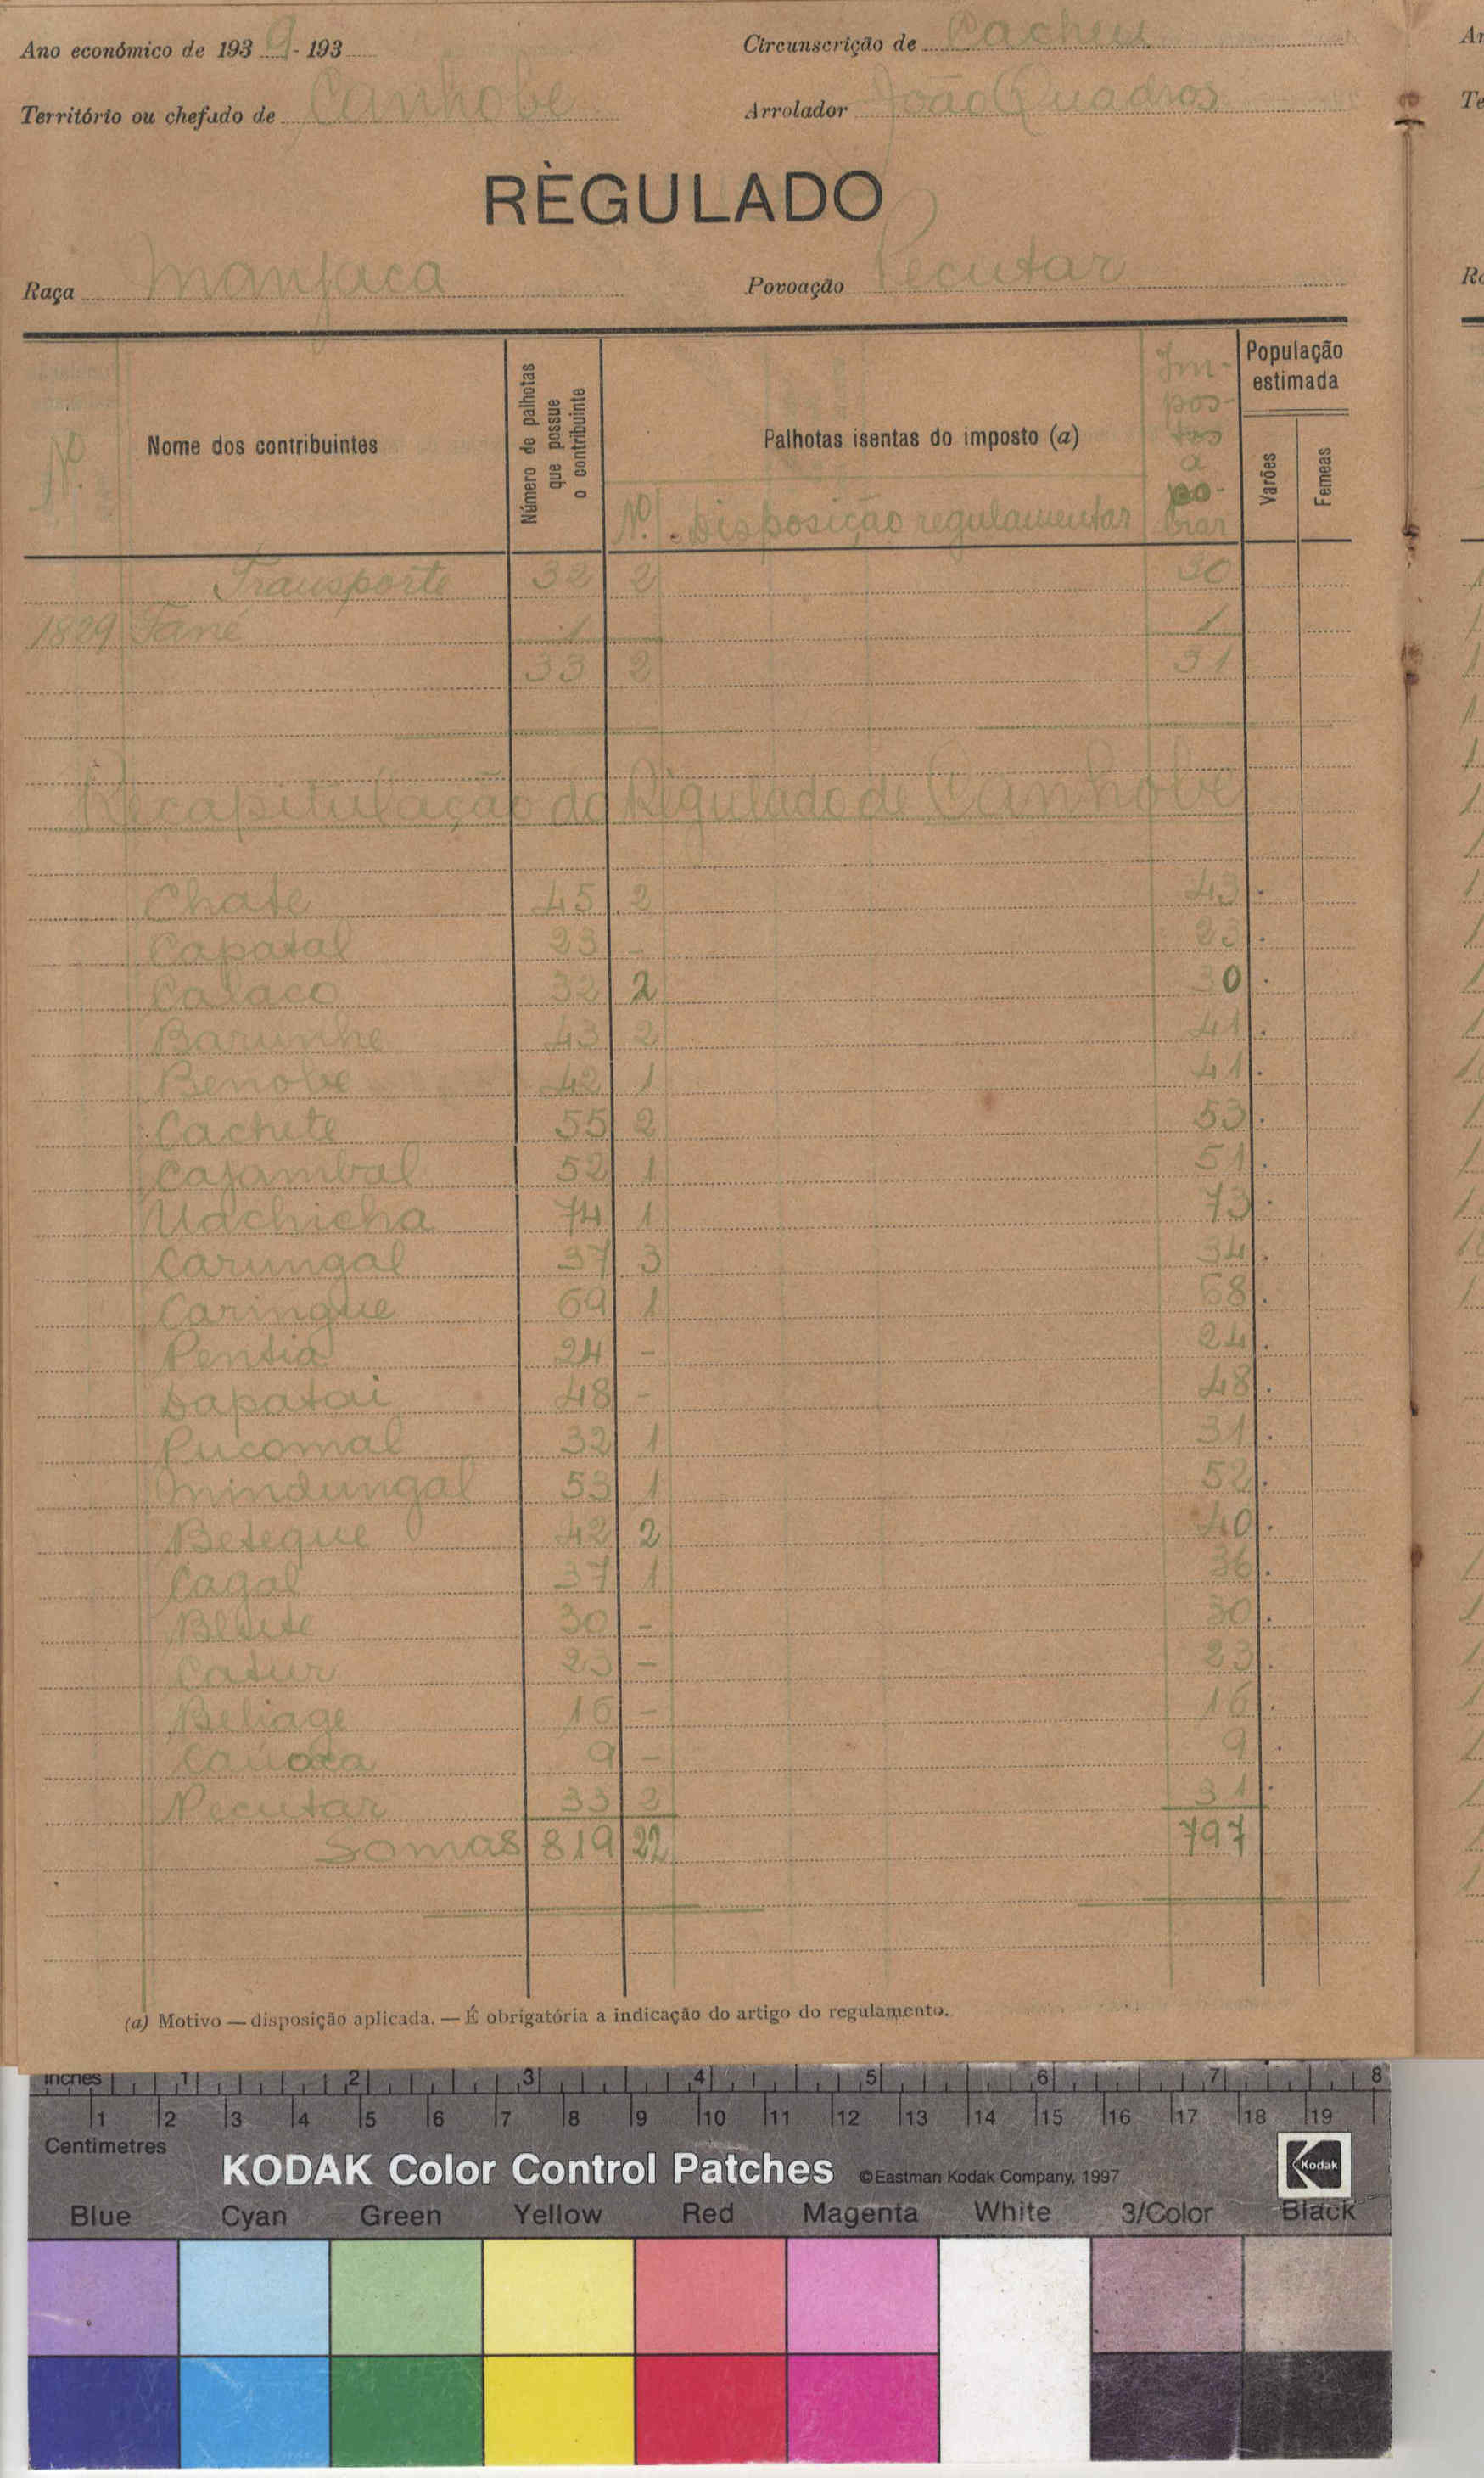 Ano económico de 193 9 - 193
Circunscrição de Cacheu
Território ou chefado de Canhobe
Arrolador João Quadros
RÈGULADO
Raça Manjaca
Povoação Pecutar
Nº
Nome dos contribuintes
Número de palhotas que possue o contribuinte
Palhotas isentas do imposto (a)
Nº Disposição regulamentar
Im-
pos-
tos
a
co-
brar
População estimada
Varões
Femeas
Transporte 32 2 30
1829 Tané 1 1
33 2 31
Recapitulação do Régulado de Canhobe
Chate 45 2 43
Capatal 23 - 23
Calaco 32 2 30
Barunhe 43 2 41
Benobe 42 1 41
Cachete 55 2 53
Cajambal 52 1 51
Uachicha 74 1 73
Carungal 37 3 34
Caringue 69 1 68
Pentia 24 - 24
Dapatai 48 - 48
Pucomal 32 1 31
Mindungal 53 1 52
Betegue 42 2 40
Cagal 37 1 36
30 - 30
Catur 23 - 23
Beliage 16 - 16
9 - 9
Pecutar 33 2 31
Somas 819 22 797
(a) Motivo — disposição aplicada. — É obrigatória a indicação do artigo do regulamento.
Inches 1 2 3 4 5 6 7 8
1 2 3 4 5 6 7 8 9 10 11 12 13 14 15 16 17 18 19
Centimetres
KODAK Color Control Patches ©Eastman Kodak Company, 1997 Kodak
Blue Cyan Green Yellow Red Magenta White 3/Color Black